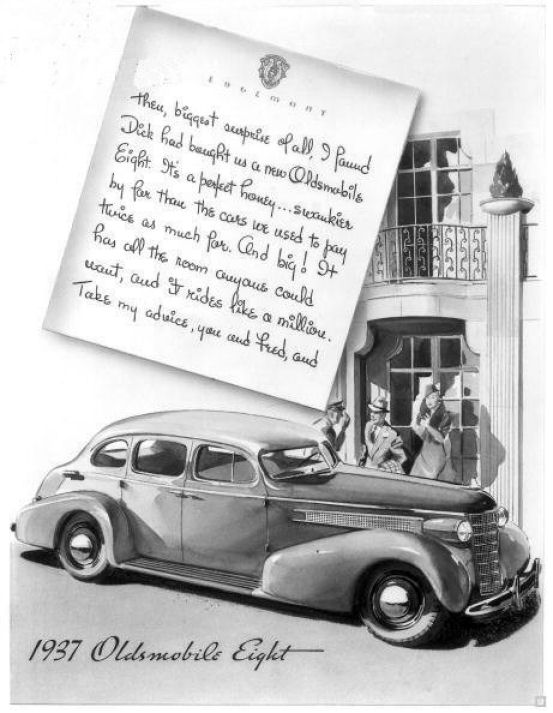 EDGEMONT
Then, biggest surprise of all, I found
Dick had bought us a new Oldsmobile
Eight. It's a perfect honey... swankier
by far than the cars we used to pay
twice as much for. And big! It
has all the room anyone could
want, and it rides like a million.
Take my advice, you and Fred, and
1937 Oldsmobile Eight